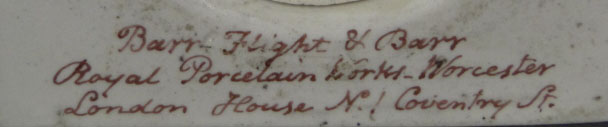 Barr Flight & Barr
Royal Porcelain Works - Worcester
London House No. 1 Coventry St.